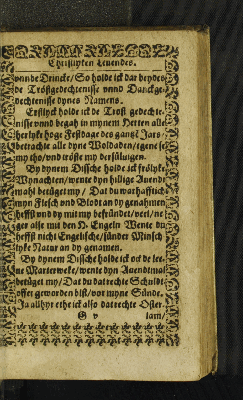 Christlyken Levendes.
vnnde Drincke/ So holde ick dar beydes
de Tröstgedechtenisse vnnd Danckge-
dechtenisse dynes Namens.
Erstlyck holde ick de Trost gedechte-
nisse vnnd begah in mynem Herten alle
herlyke hoge Festdage des gantz Jars/
betrachte alle dyne Woldaden/egene se
my tho/vnd tröste my dersüluigen.
By dynem Dissche holde ick frölyke
Wynachten/wente dyn hillige Auendt
mahl betüget my/ Dat du warhafftich
myn Flesch vnd Blodt an dy genahmen
heffst vnd dy mit my befründet/veel/ne
ger alse mit den H. Engeln Wente du
heffst nicht Engelische/sünder Minsch
lyke Natur an dy genamen.
By dynem Dissche holde ick ock de lee-
ne Marterweke/wente dyn Auendtmal
betüget my/ Dat du dat rechte Schuldt
offer geworden bist/vor myne Sünde.
Ja alhyr ethe ick also dat rechte Oster-
G v lam/